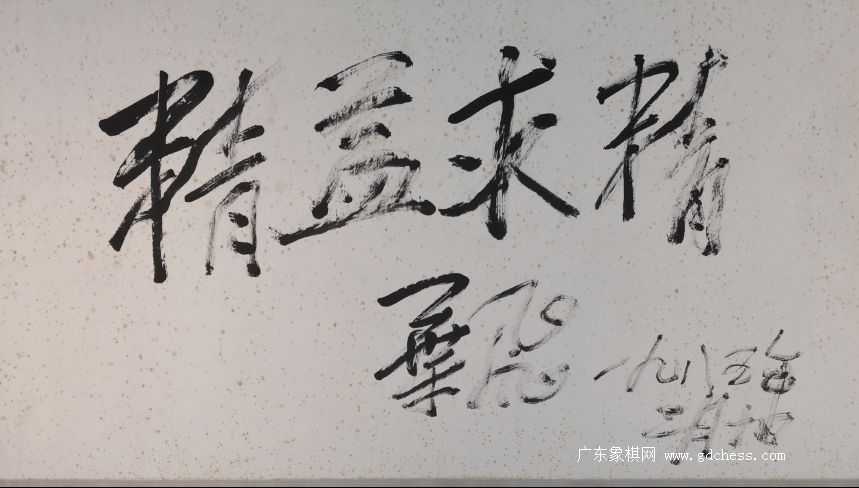 精益求精
叶飞
一九八五年
二月十四
广东象棋网 www.gdchess.com